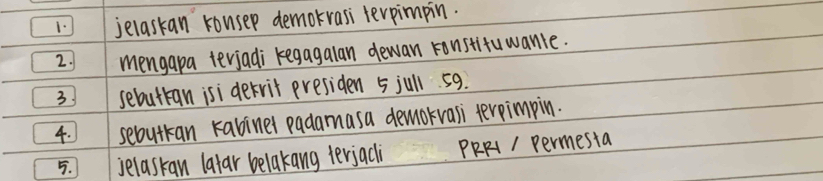 1. jelaskan konsep demokrasi terpimpin.
2. mengapa terjadi kegagalan dewan konstituwante.
3. sebutkan isi dekrit presiden 5 juli 59.
4. sebutkan kabinet padamasa demokrasi terpimpin.
5. jelaskan latar belakang terjadi PRRI / permesta